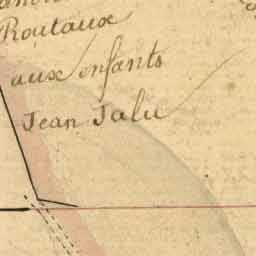 Routaux
aux enfants
Jean Jalu